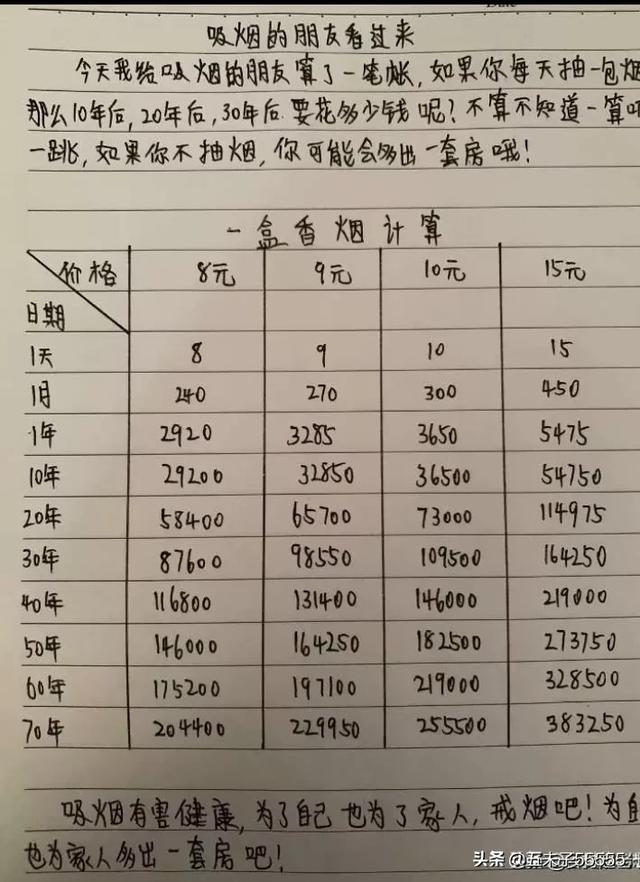 吸烟的朋友看过来
今天我给吸烟的朋友算了一笔帐,如果你每天抽一包烟
那么10年后,20年后,30年后.要花多少钱呢?不算不知道一算吓
一跳,如果你不抽烟,你可能会多出一套房哦!
一盒香烟计算
价格 8元 9元 10元 15元
日期
1天 8 9 10 15
1月 240 270 300 450
1年 2920 3285 3650 5475
10年 29200 32850 36500 54750
20年 58400 65700 73000 114975
30年 87600 98550 109500 164250
40年 116800 131400 146000 219000
50年 146000 164250 182500 273750
60年 175200 197100 219000 328500
70年 204400 229950 255500 383250
吸烟有害健康,为了自己也为了家人,戒烟吧!为自
也为家人多出一套房吧!
头条